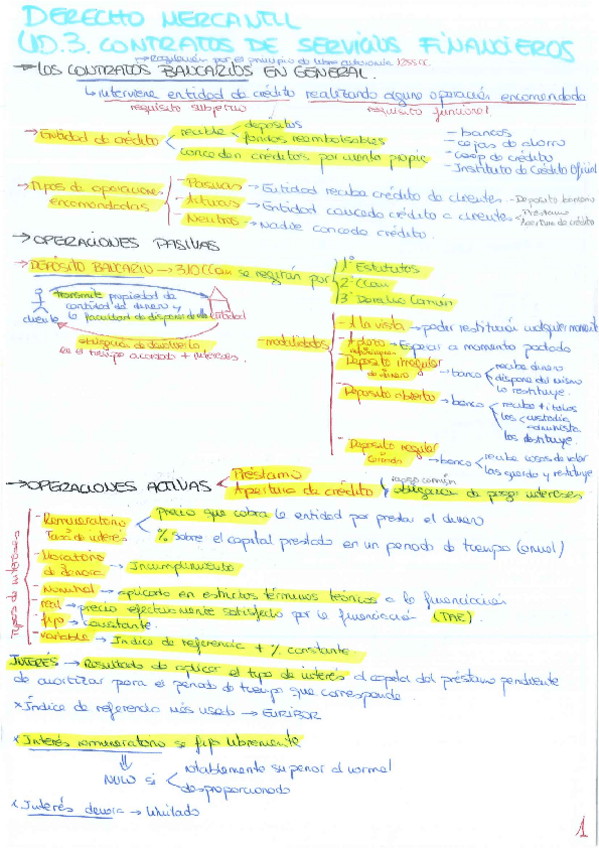 DERECHO MERCANTIL
UD.3. CONTRATOS DE SERVICIOS FINANCIEROS
→ Regulación por el principio de libre autonomía 1255 CC.
→ LOS CONTRATOS BANCARIOS EN GENERAL.
↳ interviene entidad de crédito realizando alguna operación encomendada
requisito subjetivo requisito funcional.
→ Entidad de crédito
recibe
depósitos
fondos reembolsables
conceden créditos por cuenta propia
- bancos
- cajas de ahorro
- Coop de crédito
- Instituto de Crédito Oficial
→ Tipos de operaciones encomendadas
- Pasivas → Entidad recibe crédito de clientes - Depósito bancario
- Activas → Entidad concede crédito a clientes
Préstamo
Apertura de crédito
- Neutras → Nadie concede crédito.
→ OPERACIONES PASIVAS
→ DEPÓSITO BANCARIO → 310 CCom se regirán por
1º Estatutos
2º CCom
3º Derecho Común
cliente
transmite propiedad de
cantidad de dinero y
la facultad de disponer de ella
entidad
obligación de devolverla
en el tiempo acordado + intereses.
- modalidades
- A la vista → pedir restitución cualquier momento
- A plazo → Esperar a momento pactado
- Depósito irregular
de dinero
→ banco
recibe dinero
dispone del mismo
lo restituye.
- Depósito abierto → banco
recibe títulos
los custodia
administra
los restituye.
- Depósito regular
cerrado
→ banco
recibe cosas de valor
las guarda y restituye
→ OPERACIONES ACTIVAS
Préstamo
Apertura de crédito
rasgo común
obligación de pagar intereses
Types de intereses
- Remuneratorio
Tasa de interés
precio que cobra la entidad por prestar el dinero
% sobre el capital prestado en un periodo de tiempo (anual)
- Moratorio
de demora
→ Incumplimiento
- Nominal → aplicado en estrictos términos teóricos a la financiación
- real → precio efectivamente satisfecho por la financiación (TAE)
- fijo → constante.
- variable → Índice de referencia + % constante.
INTERÉS → Resultado de aplicar el tipo de interés al capital del préstamo pendiente
de amortizar para el periodo de tiempo que corresponde.
× Índice de referencia más usado → EURIBOR
× Interés remuneratorio se fija libremente
NULO si
notablemente superior al normal
desproporcionado
× Interés demora → limitado
1